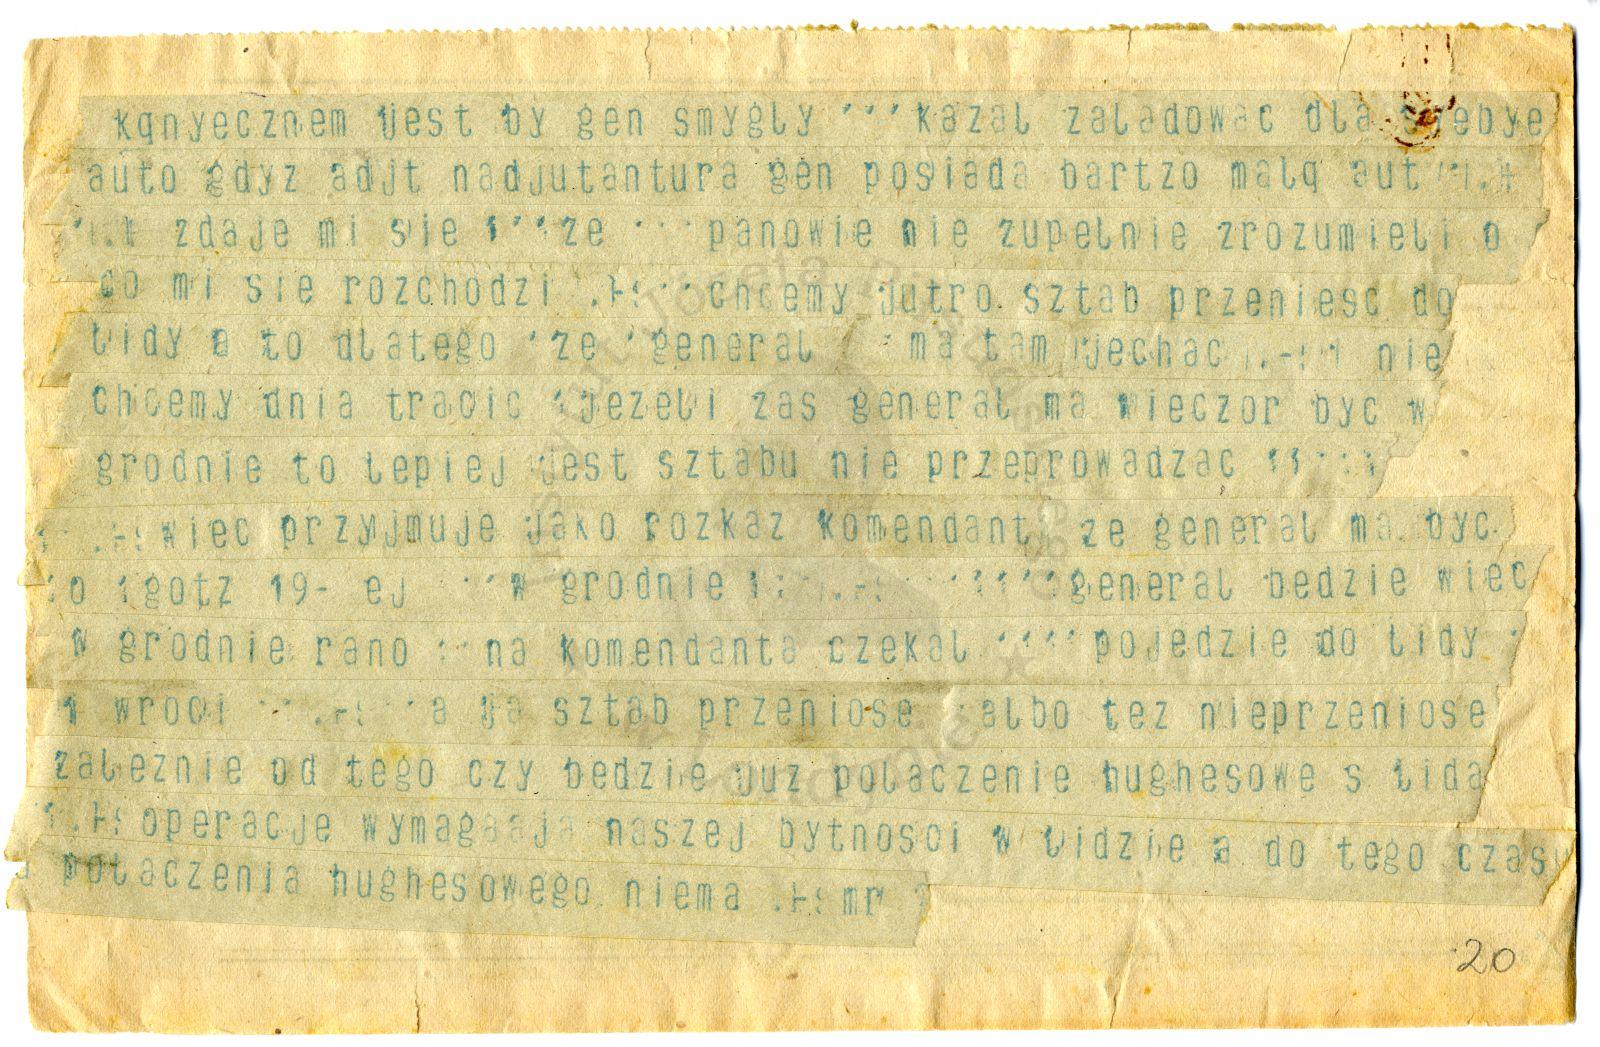 kqnyecznem jest by gen smygly ''' kazal zaladowac dla syebye
auto gdyz adjt nadjutantura gen posiada bartzo malq aut
zdaje mi sie '''ze ''' panowie nie zupelnie zrozumieli o
co mi sie rozchodzi chcemy jutro sztab przeniesc do
lidy a to dlatego 'ze 'general ma tam jechac nie
chcemy dnia tracic jezeli zas general ma wieczor byc w
grodnie to lepiej jest sztabu nie przeprowadzac
wiec przyjmuje jako rozkaz komendant ze general ma byc
o godz 19- ej w grodnie general bedzie wiec
w grodnie rano na komendanta czekal '''' pojedzie do lidy
i wroci a ja sztab przeniose albo tez nieprzeniose
zaleznie od tego czy bedzie juz polaczenie hughesowe s lida
operacje wymagaaja naszej bytnosci w lidzie a do tego czasu
polaczenia hughesowego niema mr
20